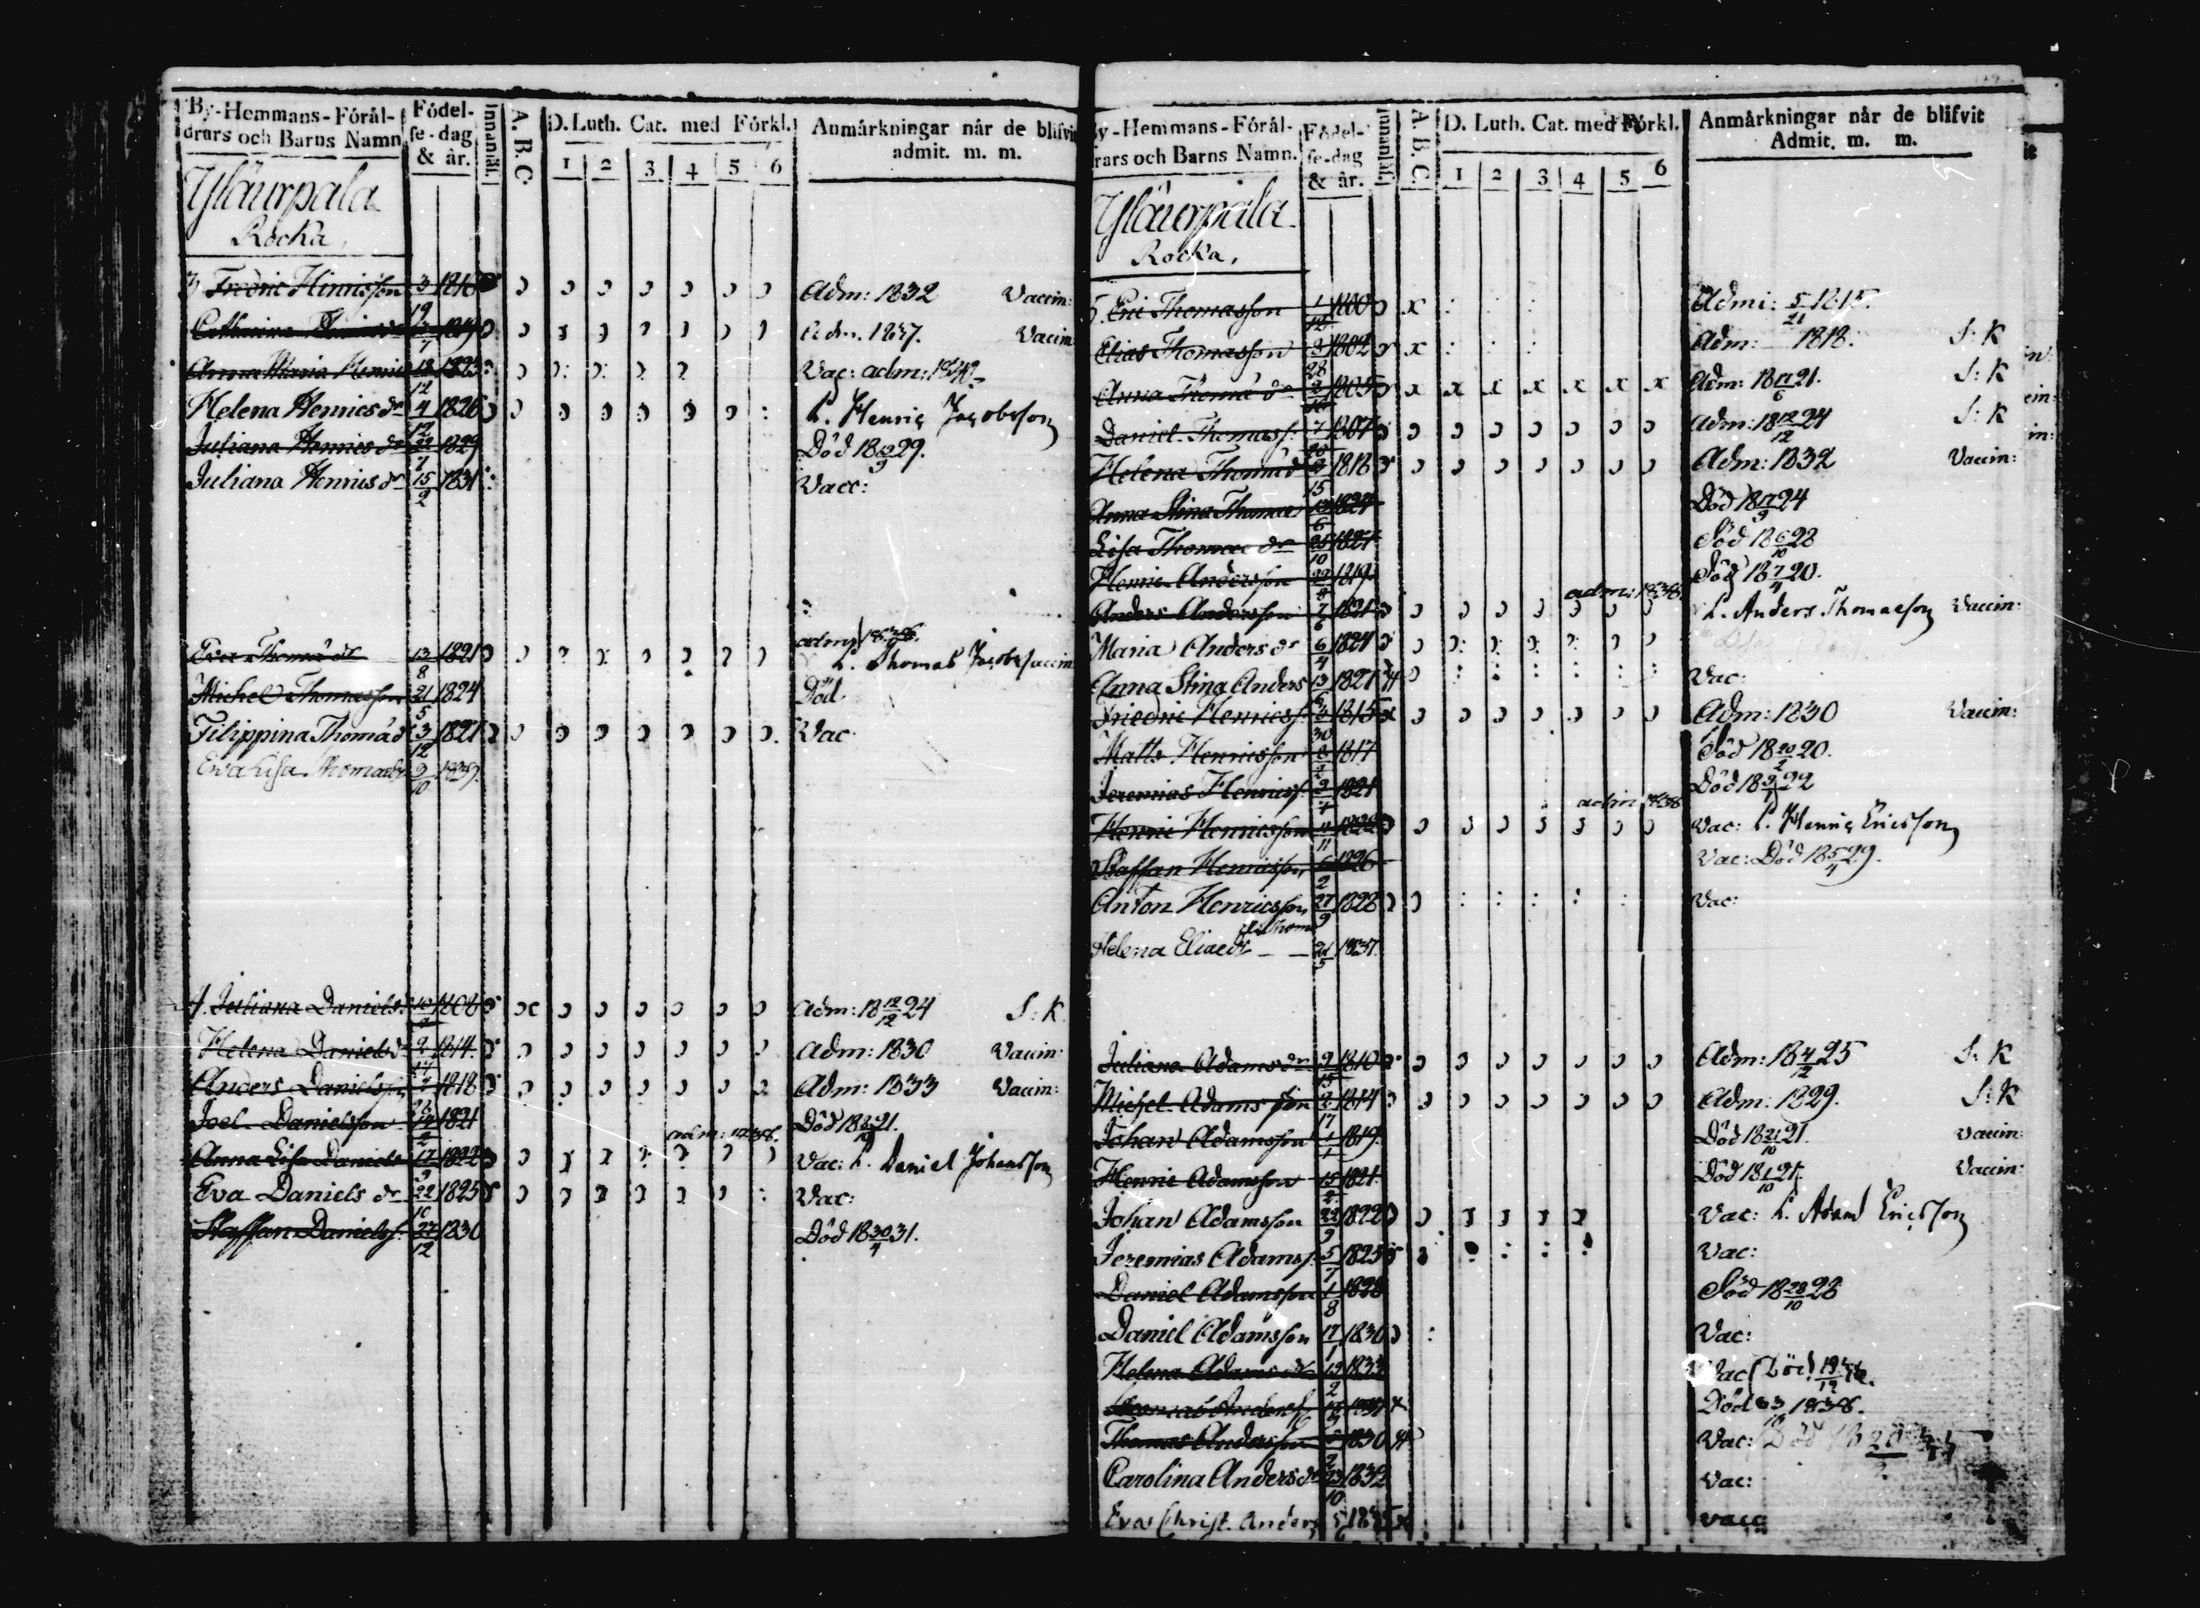 By-Hemmans-Förål-
drars och Barns Namn
Födel-
se-dag
& år.
Innanläf.
A. B. C.
D. Luth. Cat. med Förkl.
1 2 3 4 5 6
Anmårkningar når de blifvit
admit. m. m.
Yläurpala
Rocka,
3 Fredric Hinricsson 3/19 1816 Adm: 1832 Vaccin:
1819 Adm. 1837. Vaccin:
Anna Maria Henrics 18/12 1823 Vac: adm: 1840
Helena Henrics dr 4/12 1826 L. Henric Jacobsson
Juliana Henrics dr 22/7 1829 Död 1829.
Juliana Henrics dr 15/2 1831 Vacc:
adm: 1838.
Eva Thomä dr 13/8 1821 L. Thomas Jacobs
Michel Thomasson 21/5 1824 Död.
Filippina Thomä d 3/12 1827 Vac.
Eva Lisa Thomasdr 9/10 1839.
4. Juliana Daniels 1808 Adm: 18 12/12 24 S: K.
Helena Daniels dr 2 1814. Adm: 1830 Vaccin:
Anders Danielss 1818 Adm: 1833 Vaccin:
Joel Danielsson 1821 Död 1821.
adm: 1838.
Anna Lisa Daniels 17/9 1822 Vac: L. Daniel Johansson
Eva Daniels dr 22/10 1825 Vac:
Staffan Daniels f. 27/12 1830 Död 18 30/4 31.
By-Hemmans-Förål-
drars och Barns Namn.
Födel-
se-dag
& år.
Innanläf.
A. B. C.
D. Luth. Cat. med Förkl.
1 2 3 4 5 6
Anmårkningar når de blifvit
Admit. m. m.
Yläurpala
Rocka,
5. Eric Thomasson 1/12 1800 Admi: 5/21 1815.
Elias Thomasson 3/28 1802 Adm: 1818. S: K
Anna Thomä dr 1805 Adm: 18 17/6 21. S: K
Daniel Thomass. 7/20 1807 Adm: 18 12/12 24 S: K
Helena Thomä d 1818 Adm: 1832 Vaccin:
Anna Stina Thomas 13/6 1824 Död 18 17/9 24
Lisa Thomae dr 25/10 1827 Död 18 6/10 28
Henric Andersson 1819 Död 18 7/4 20.
adm: 1838.
Anders Andersson 7/6 1821 L. Anders Thomasson Vaccin:
Maria Anders dr 6/4 1824
Anna Stina Anders 13/6 1827 Vac:
Friedric Henrics f. 1815 Adm: 1830 Vaccin:
Matts Henricsson 1817 Död 18 20/2 20.
Jeremias Henrics f. 1821 Död 1822
adm 1838
Henric Henricsson 4/11 1822 Vac: L. Henric Ericsson
Staffan Henricsson 6/2 1826 Vac: Död 18 5/4 29.
Anton Henricsson 27/9 1828 Vac:
Helena Eliaedr 24/5 1837.
Juliana Adams dr 9/15 1810 Adm: 18 4/12 25 S: K
Michel Adams son 2/17 1814 Adm: 1829. S: K
Johan Adamsson 1/1 1819. Död 18 21/10 21. Vaccin:
Henric Adamsson 15/2 1821. Död 18 1/10 21. Vaccin:
Johan Adamsson 22/9 1822 Vac: L. Adam Ericsson
Jeremias Adams f. 5/7 1825 Vac:
Daniel Adamsson 1/8 1828 Död 18 28/10 28
Daniel Adamsson 17/1 1830 Vac:
Helena Adams dr 19/2 1833 Vac Död
Död 1838.
Thomas Andersson 1830 Vac: Död
Carolina Anders dr 23/10 1832 Vac:
Eva Christ. Anders 5/6 1835 vacc